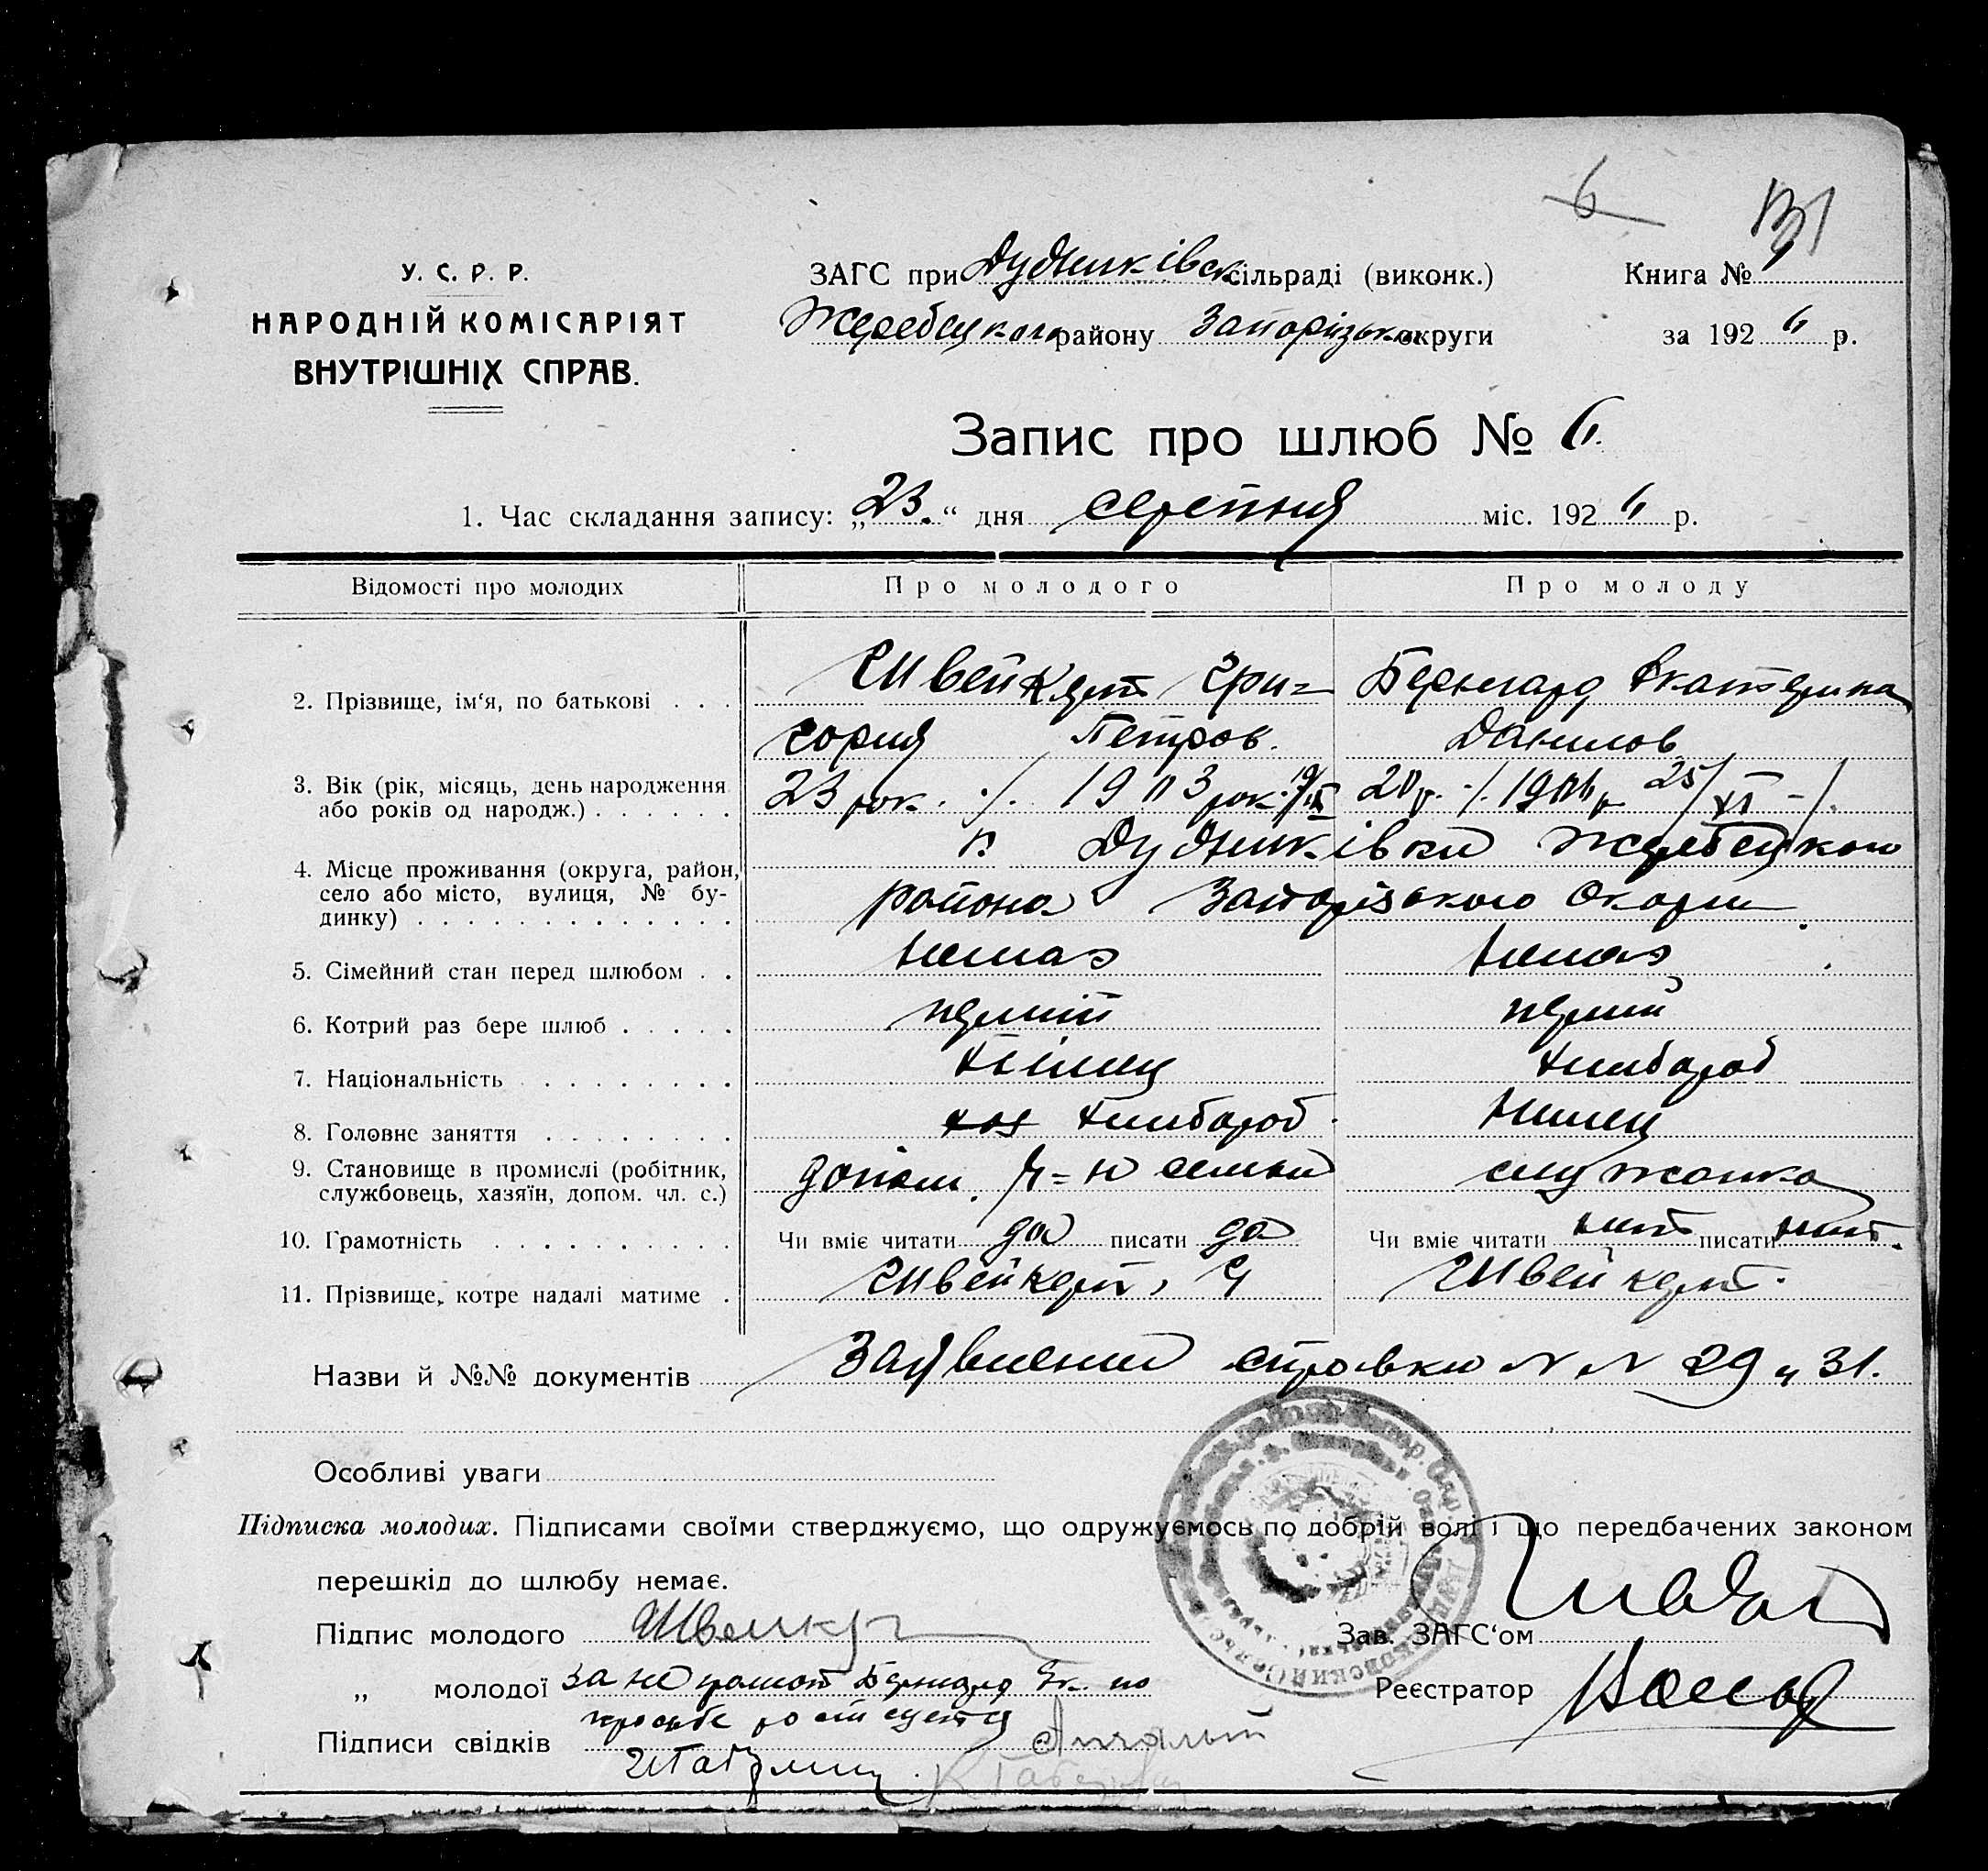 6 131
У. С. Р. Р.
НАРОДНІЙ КОМІСАРІЯТ
ВНУТРІШНІХ СПРАВ.
ЗАГС при Дудниківск сільраді (виконк.) Книга №
Жеребецкого району Запорізько округи за 192 6 р.
Запис про шлюб № 6.
1. Час складання запису: „23.“ дня серепня міс. 192 6 р.
Відомості про молодих Про молодого Про молоду
2. Прізвище, ім‘я, по батькові . . . Швейкерт Гри= Бернгард Екатерина
гория Петров. Данилов
3. Вік (рік, місяць, день народження 23 рок. 1903 рок. 20 р. 1906 р. 25/XI
або років од народж.) . . . . . .
4. Місце проживання (округа, район, к. Дудниківки Жеребецкого
село або місто, вулиця, № бу- района Запорізького Окорги
динку) . . . . . . . . . . . . .
5. Сімейний стан перед шлюбом . . немаэ немаэ
6. Котрий раз бере шлюб . . . . . перший перший
7. Національність . . . . . . . . Німец хлібороб
8. Головне заняття . . . . . . . . хлібороб. Нимец
9. Становище в промислі (робітник, допом. семьи служанка
службовець, хазяїн, допом. чл. с.)
10. Грамотність . . . . . . . . . . Чи вміє читати да писати да Чи вміє читати нит писати нит.
11. Прізвище, котре надалі матиме . Швейкерт, Г Швейкерт.
Назви й №№ документів Заявлении справки N N 29 и 31.
Особливі уваги
Підписка молодих. Підписами своїми стверджуємо, що одружуємось по добрій волі і що передбачених законом
перешкід до шлюбу немає.
Підпис молодого Швейкер Зав. ЗАГС‘ом
„ молодої за не грамот Бернгард Ек. по Реєстратор
просьбе росписуется
Підписи свідків